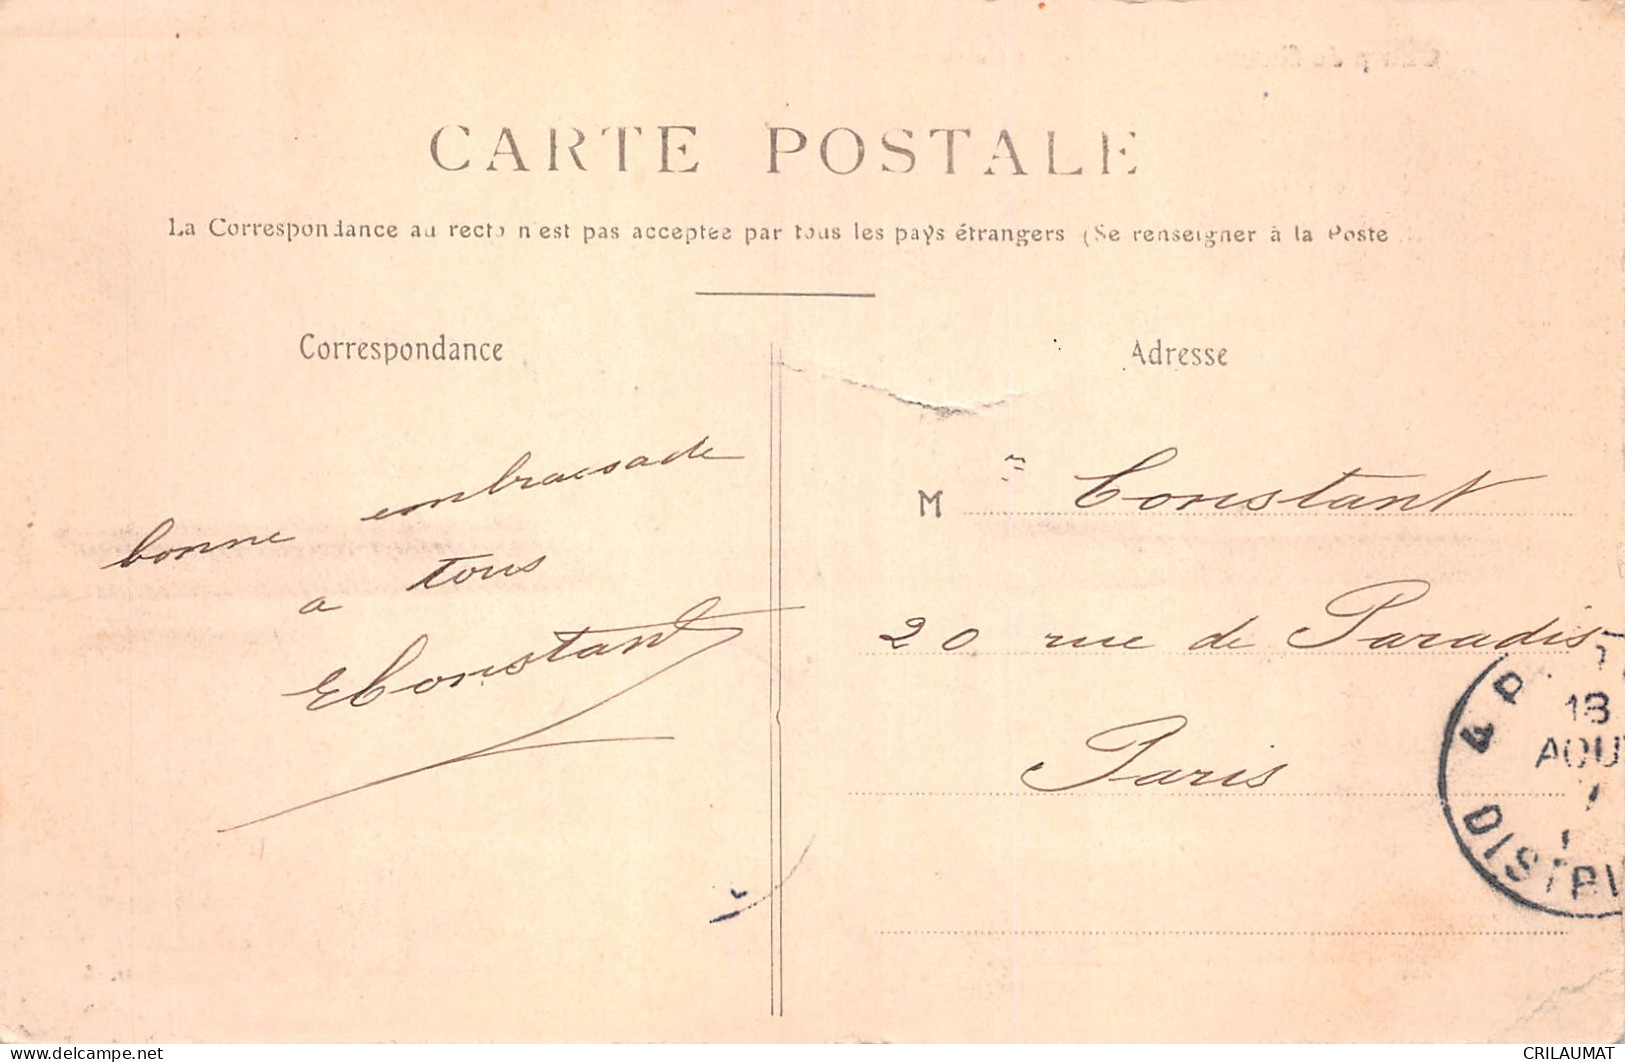 CARTE POSTALE
La Correspondance au recto n'est pas acceptée par tous les pays étrangers (Se renseigner à la Poste
Correspondance
bonne embrassade
a tous
EConstant
Adresse
M me Constant
20 rue de Paradis
Paris
18
AOUT
DISTRI
delcampe.net
CRILAUMAT